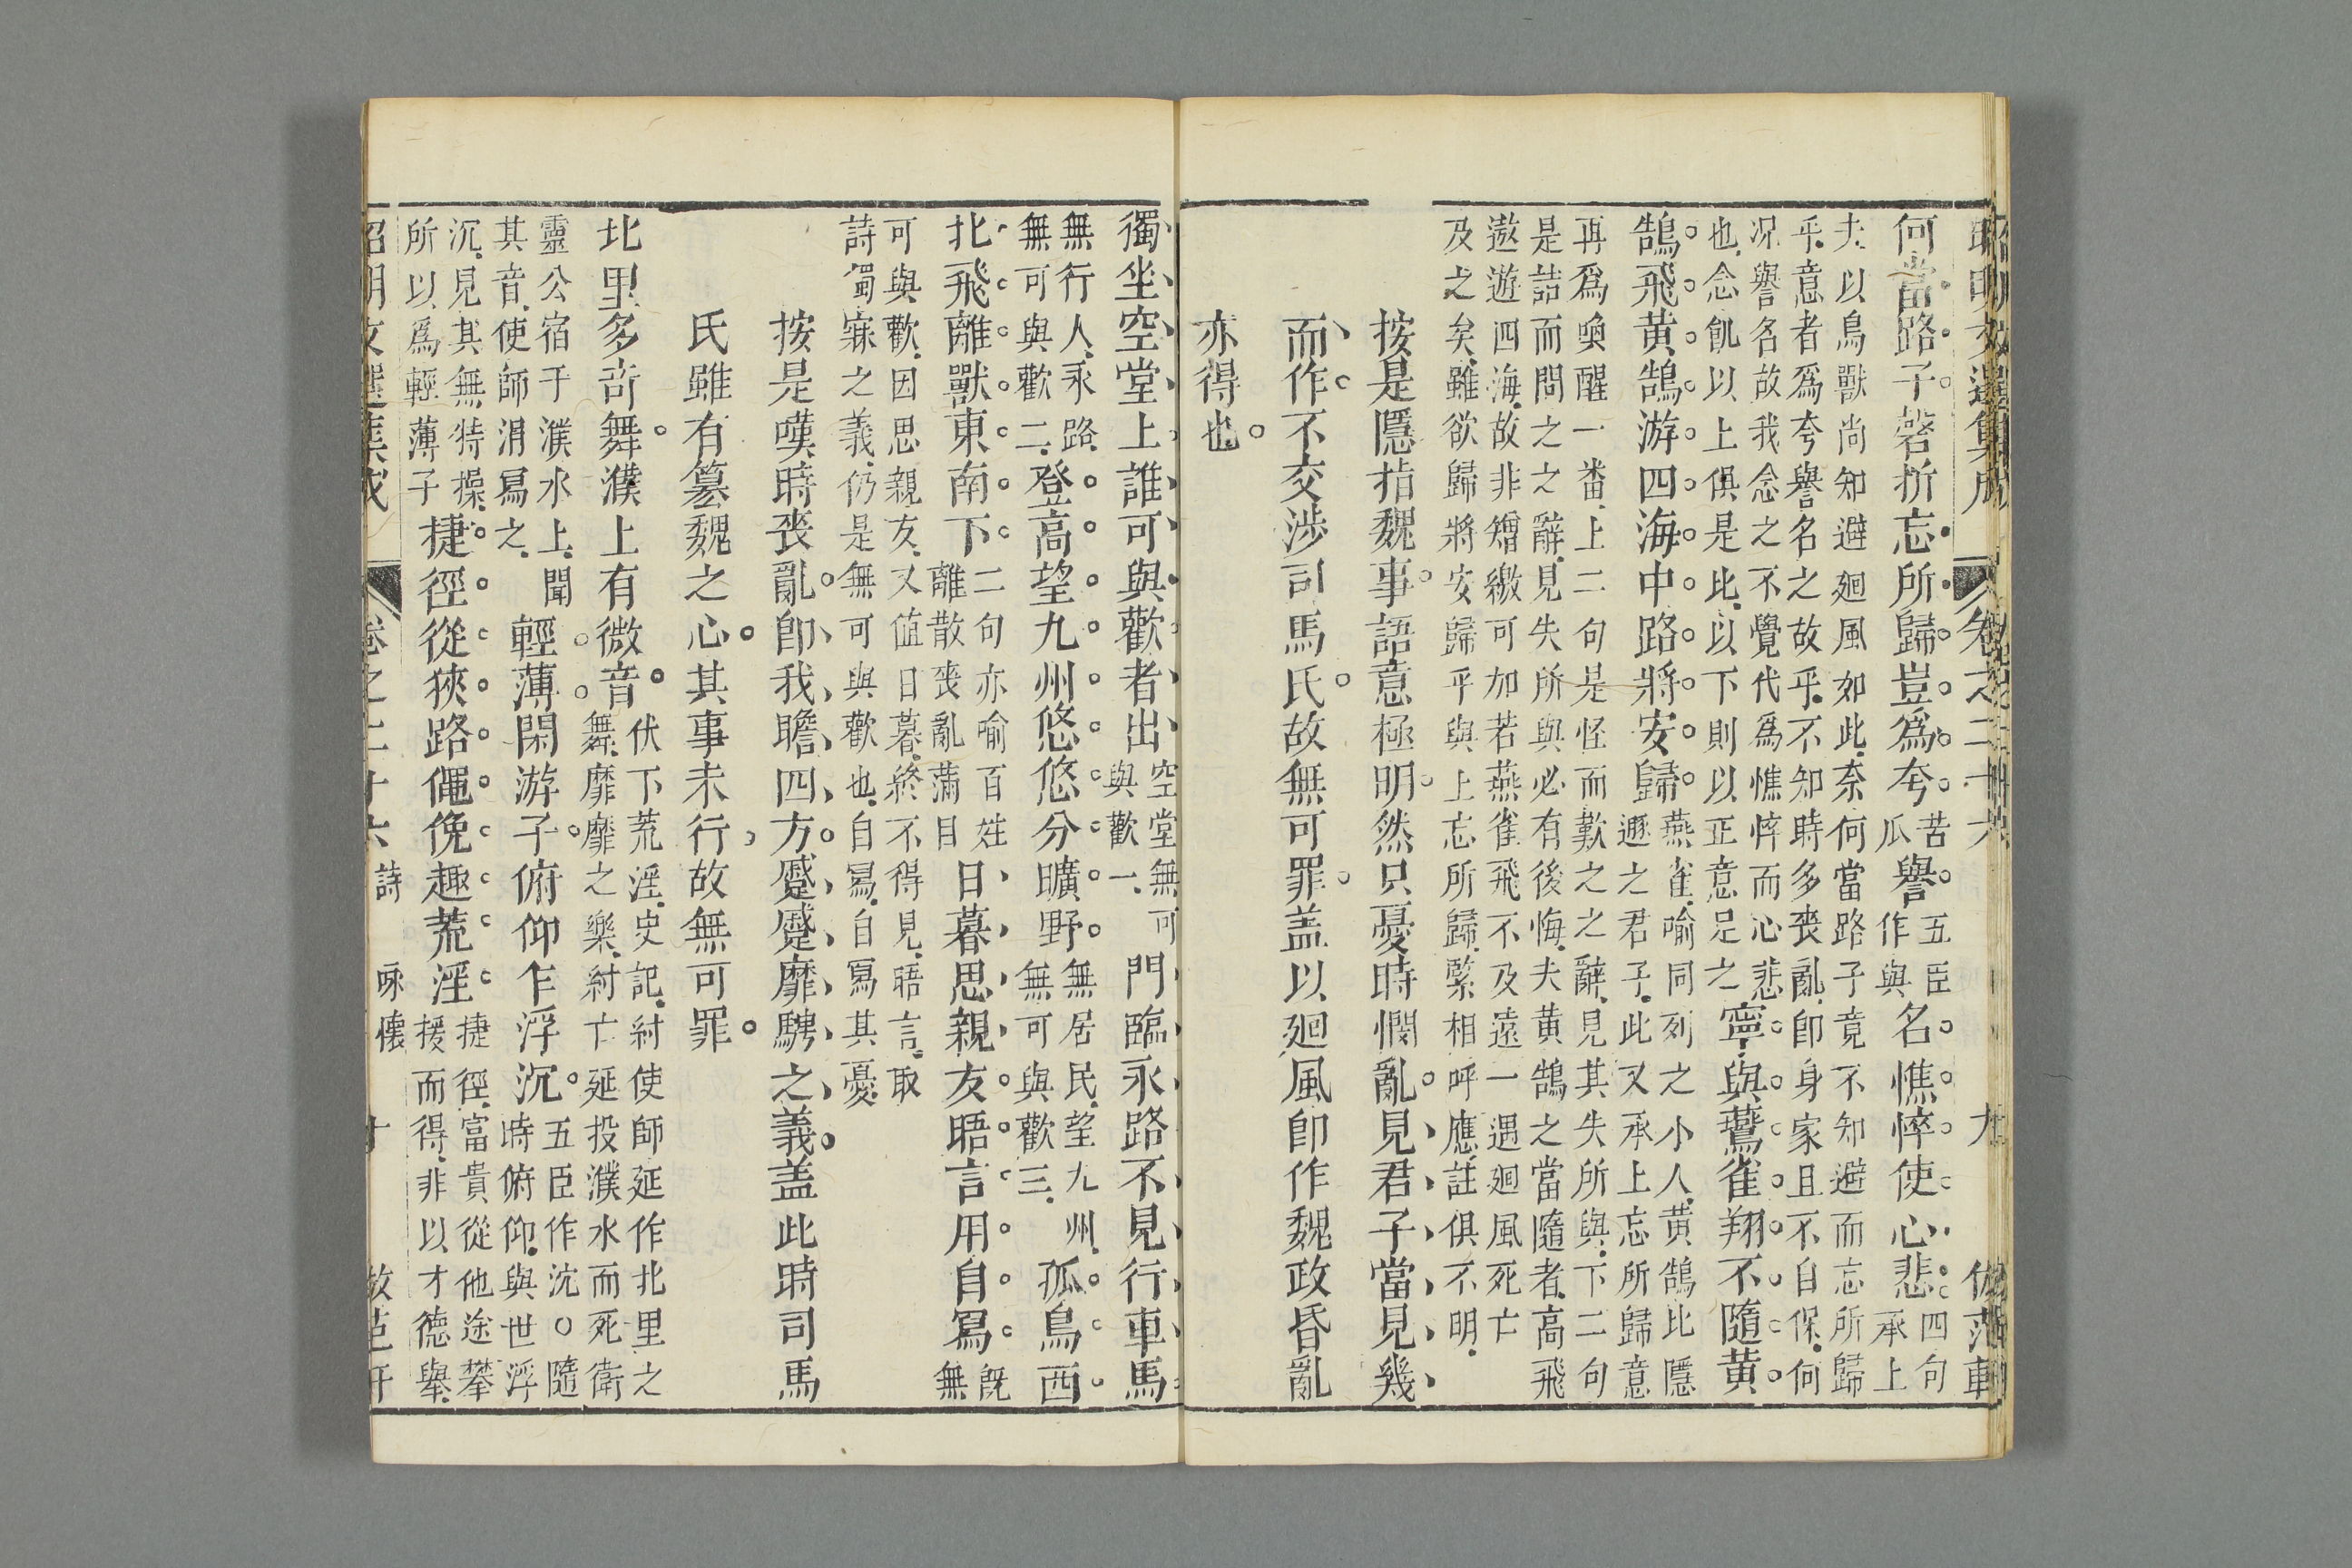 昭明文選集成 卷之二十六 九 倣范軒
何當路子磬折忘所歸豈爲夸苦瓜譽五臣作與名憔悴使心悲四句承上
夫以鳥獸尚知避廻風如此奈何當路子竟不知避而忘所歸
乎意者爲夸譽名之故乎不知時多喪亂卽身家且不自保何
况譽名故我念之不覺代爲憔悴而心悲
也念飢以上俱是比以下則以正意足之寧與鷰雀翔不隨黃
鵠飛黃鵠游四海中路將安歸燕雀喻同列之小人黃鵠比隱遯之君子此又承上忘所歸意
再爲喚醒一番上二句是怪而歎之之辭見其失所與下二句
是詰而問之之辭見失所與必有後悔夫黃鵠之當隨者高飛
遨遊四海故非矰繳可加若燕雀飛不及遠一遇廻風死亡
及之矣雖欲歸將安歸乎與上忘所歸緊相呼應註俱不明
按是隱指魏事語意極明然只憂時憫亂見君子當見幾
而作不交涉司馬氏故無可罪盖以廻風卽作魏政昏亂
亦得也
獨坐空堂上誰可與歡者出空堂無可與歡一門臨永路不見行車馬
無行人永路無可與歡二登高望九州悠悠分曠野無居民望九州無可與歡三孤鳥西
北飛離獸東南下二句亦喻百姓離散喪亂滿目日暮思親友晤言用自寫旣無
可與歡因思親友又值日暮終不得見晤言取
詩獨寐之義仍是無可與歡也自寫自寫其憂
按是嘆時喪亂卽我瞻四方蹙蹙靡騁之義盖此時司馬
氏雖有篡魏之心其事未行故無可罪
北里多奇舞濮上有微音伏下荒淫史記紂使師延作北里之舞靡靡之樂紂亡延投濮水而死衛
靈公宿于濮水上聞其音使師涓寫之輕薄閑游子俯仰乍浮沉五臣作沈○隨時俯仰與世浮
沉見其無特操所以爲輕薄子捷徑從狹路僶俛趣荒淫捷徑富貴從他途攀援而得非以才德舉
昭明文選集成 卷之二十六 詩 咏懐 十 倣范軒